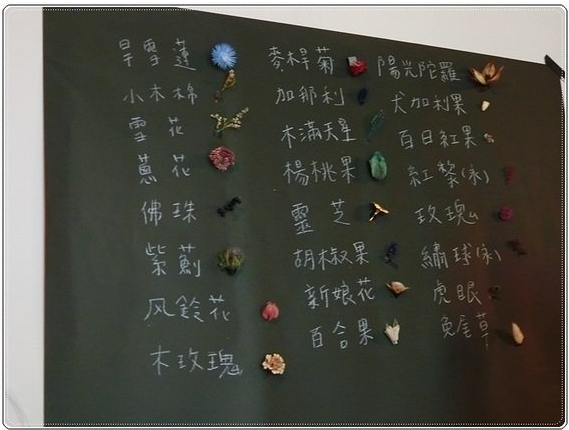 旱雪蓮
小木棉
雪花
蔥花
佛珠
紫薊
风鈴花
木玫瑰
麥桿菊
加那利
木滿天星
楊桃果
靈芝
胡椒果
新娘花
百合果
陽光陀羅
犬加利果
百日紅果
紅藜(永)
玫瑰
繡球(永)
虎眼
兔尾草